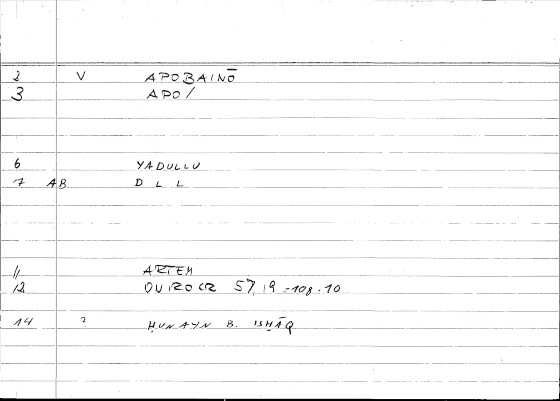 2 V APOBAINŌ
3 APO/
6 YADULLU
7 AB D L L
11 ARTEM
12 57,19 - 108.10
14 ? ḤUNAYN B. ISḤĀQ